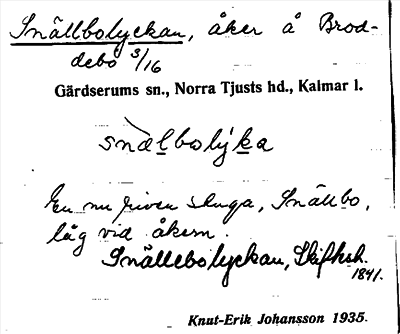 Snällbolyckan, åker å Brod-
debo 3/16
Gärdserums sn., Norra Tjusts hd., Kalmar l.
snàl̲bolýk̲a
En nu riven stuga, Snällbo,
låg vid åkern.
Snällebolyckan, Skifksh.
1841.
Knut-Erik Johansson 1935.